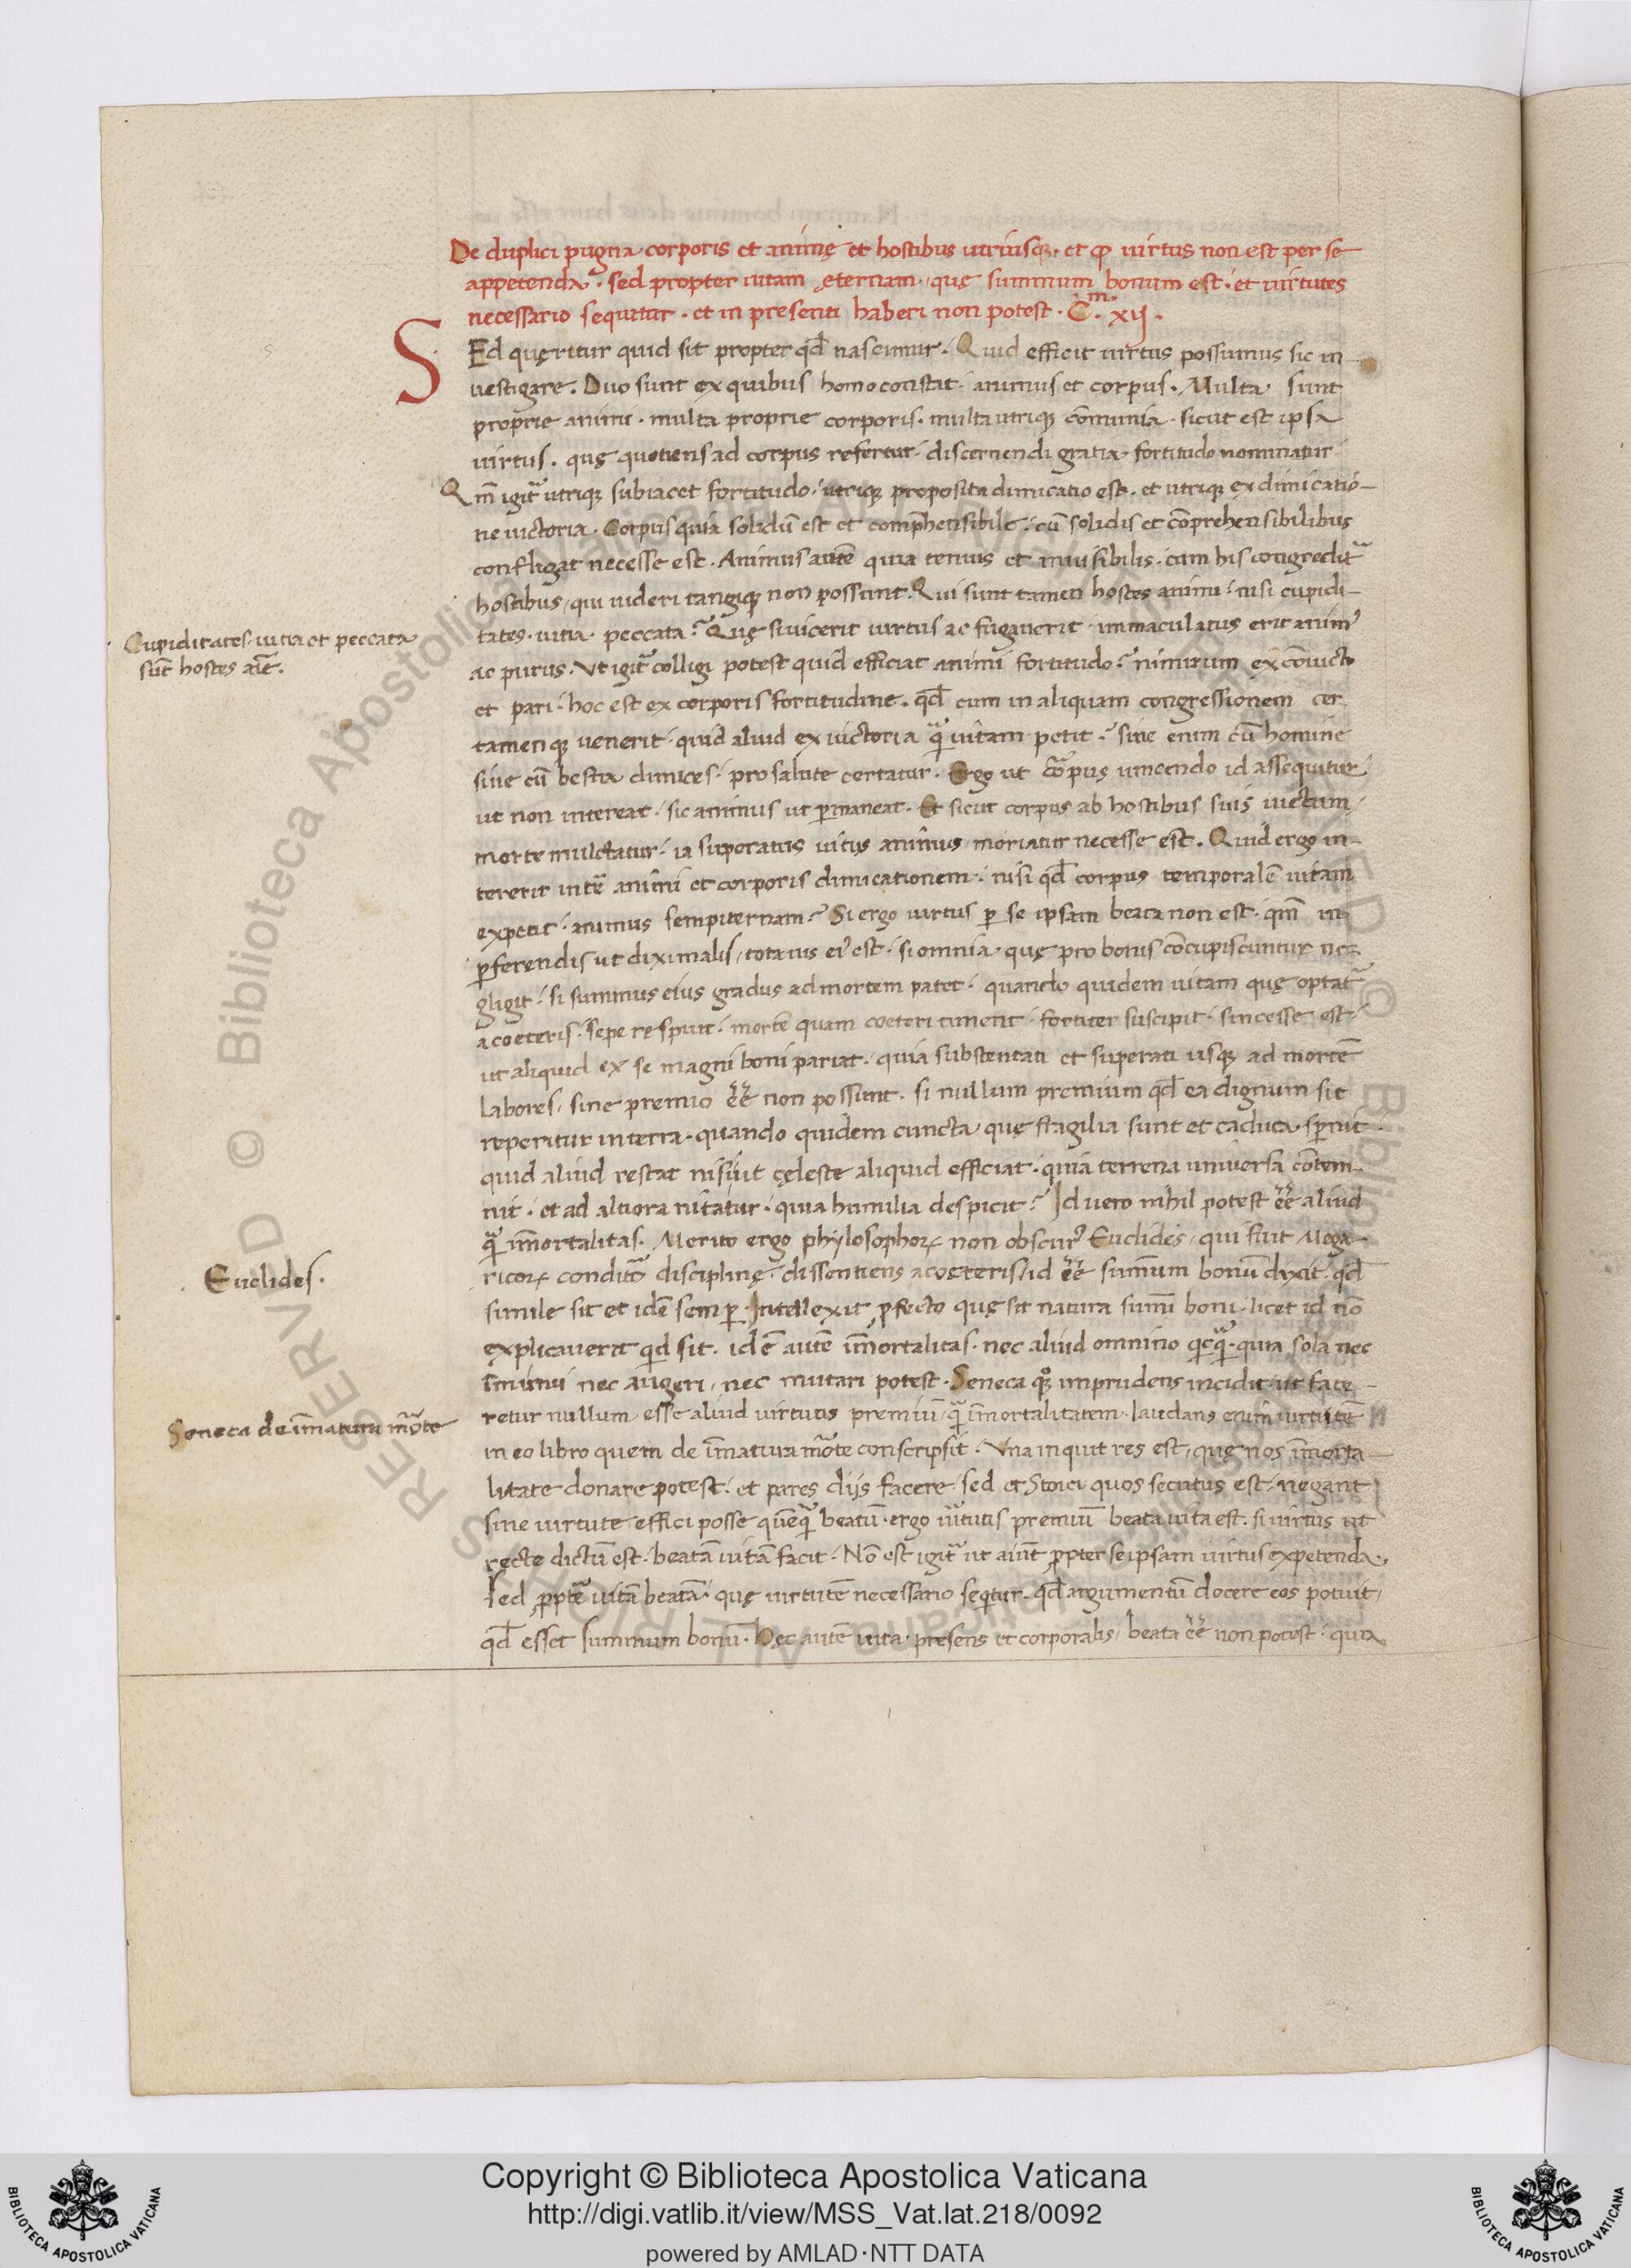 De duplici pugna corporis et animę et hostibus utriusq;. et ꝙ virtus non est per se
appetenda. sed propter uitam ęternam. quę summum bonum est. et uirtutes
necessario sequitur. et in presenti haberi non potest. C.m xij.
SEd quęritur quid sit propter qd̄ nascimur. Quid efficit uirtus possumus sic in-
uestigare. Duo sunt ex quibus homo constat. animus et corpus. Multa sunt
proprie animi. multa proprie corporis. multa utriq; cōmunia. sicut est ipsa
uirtus. quę quotiens ad corpus refertur. discernendi gratia fortitudo nominatur.
Qm̄ igit᷑ utriq; subiacet fortitudo. utriq; proposita dimicatio est. et utriq; ex dimicatio-
ne uictoria. Corpus quia solidū est et comp̄hensibile. cū solidis et cōprehensibilibus
confligat necesse est. Animus autē quia tenuis et inuisibilis. cum his congredit᷑
hostibus, qui uideri tangiq; non possunt. Qui sunt tamen hostes animi? nisi cupidi-
tates. uitia. peccata? Quę si uicerit uirtus ac fugauerit. immaculatus erit anim᷒
ac purus. Vt igit᷑ colligi potest quid efficiat animi fortitudo? nimirum ex cōiuncto
et pari. hoc est ex corporis fortitudine. qd̄ cum in aliquam congressionem cer
tamenq; uenerit. quid aliud ex uictoria q̄ uitam petit? siue enim cū homine
siue cū bestia dimices. pro salute certatur. Ergo ut corpus uincendo id assequitur
ut non intereat. sic animus ut p̱maneat. Et sicut corpus ab hostibus suis uictum,
morte mulctatur. ita superatus uitijs animus moriatur necesse est. Quid ergo in-
tererit int̄ animi et corporis dimicationem. nisi qd̄ corpus temporalē uitam
expetit. animus sempiternam? Si ergo uirtus p̱ se ipsam beata non est. qm̄ in
p̱ferendis ut dixi malis, tota uis ei᷒ est. si omnia quę pro bonis cōcupiscuntur ne-
gligit. si summus eius gradus ad mortem patet. quando quidem uitam quę optat᷑
a coeteris. sepe respuit. mortē quam coeteri timent. fortiter suscipit. si necesse est.
ut aliquid ex se magni boni pariat. quia substentati et superati usq; ad mortē
labores, sine premio ēē non possunt. si nullum premium qd̄ ea dignum sit
reperitur in terra. quando quidem cuncta quę fragilia sunt et caduca spernit
quid aliud restat nisi ut cęleste aliquid efficiat. quia terrena uniuersa cōtem-
nit. et ad altiora nitatur. quia humilia despicit? Id uero nihil potest ēē aliud
q̄ īmortalitas. Merito ergo phylosophoꝝ non obscur᷒ Euclides, qui fuit Mega-
ricoꝝ condit̄ disciplinę. dissentiens a coęteris, id ēē summum bonū dixit. qd̄
simile sit et idē semp̱. Intellexit ꝓfecto quę sit natura sum̄i boni. licet id nō
explicauerit qid sit. id ē autē īmortalitas. nec aliud omnino qicq̄. quia sola nec
īminui nec augeri, nec mutari potest. Seneca quoq; imprudens incidit. ut fate-
retur nullum esse aliud uirtutis premiū q̄ īmortalitatem. laudans enim uirtutē
in eo libro quem de īmatura mōte conscripsit. Vna inquit res est, quę nos īmorta-
litate donare potest. et pares dijs facere. sed et Stoici quos secutus est. negant
sine uirtute effici posse quēq̄ beatū. ergo uirtutis premiū beata uita est. si uirtus ut
recte dictū est. beatā uitā facit. Nō est igit᷑ ut aiūt ꝓpter se ipsam uirtus expetenda,
sed ꝓpt̄ uitā beatā. quę uirtutē necessario seqitur. qd̄ argumentū docere eos potuit,
qd̄ esset summum bonū. Hęc autē uita presens et corporalis, beata ēē non potest. quia
Cupiditates. uitia et peccata
sūt hostes aīę.
Euclides.
Seneca de īmatura mōte
Copyright © Biblioteca Apostolica Vaticana
http://digi.vatlib.it/view/MSS_Vat.lat.218/0092
powered by AMLAD·NTT DATA
BIBLIOTECA APOSTOLICA VATICANA
BIBLIOTECA APOSTOLICA VATICANA